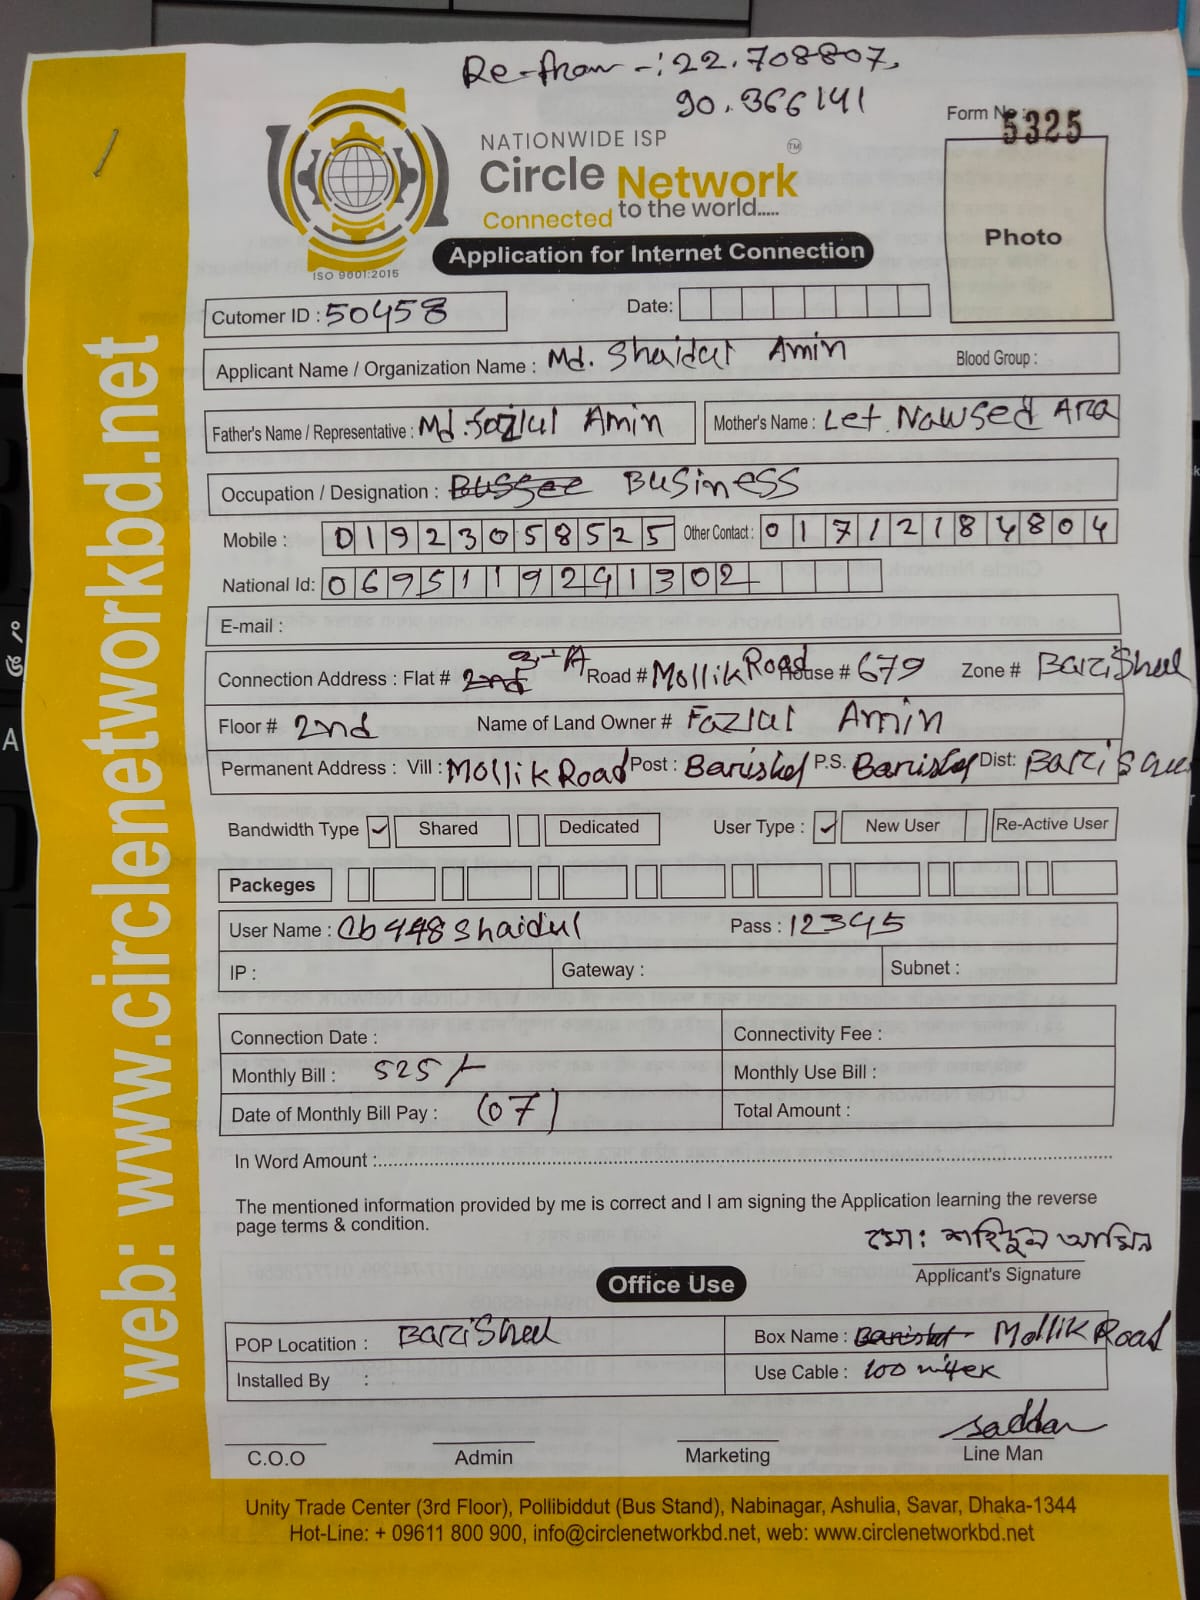 Re-from -: 22.708807,
90.366141
Form No : 5325
NATIONWIDE ISP
Circle Network TM
Connected to the world.....
ISO 9001:2015
Photo
Application for Internet Connection
Cutomer ID : 50458 Date:
Applicant Name / Organization Name : Md. Shaidul Amin Blood Group :
Father's Name / Representative : Md. Fazlul Amin Mother's Name : Let. Nawsed Ara
Occupation / Designation : Business
Mobile : 01923058525 Other Contact : 01712184804
National Id: 0695119291302
E-mail :
Connection Address : Flat # 3-A Road # Mollik Road House # 679 Zone # Barishal
Floor # 2nd Name of Land Owner # Fazlul Amin
Permanent Address : Vill : Mollik Road Post : Barishal P.S. Barishal Dist: Barishal
Bandwidth Type ✓ Shared Dedicated User Type : ✓ New User Re-Active User
Packeges
User Name : Cb448shaidul Pass : 12345
IP : Gateway : Subnet :
Connection Date : Connectivity Fee :
Monthly Bill : 525/- Monthly Use Bill :
Date of Monthly Bill Pay : (07) Total Amount :
In Word Amount :
The mentioned information provided by me is correct and I am signing the Application learning the reverse
page terms & condition.
মো: শহিদুল আমিন
Applicant's Signature
Office Use
POP Locatition : Barishal Box Name : Barishal Mollik Road
Installed By : Use Cable : 100 miter
saddam
C.O.O Admin Marketing Line Man
Unity Trade Center (3rd Floor), Pollibiddut (Bus Stand), Nabinagar, Ashulia, Savar, Dhaka-1344
Hot-Line: + 09611 800 900, info@circlenetworkbd.net, web: www.circlenetworkbd.net
web: www.circlenetworkbd.net